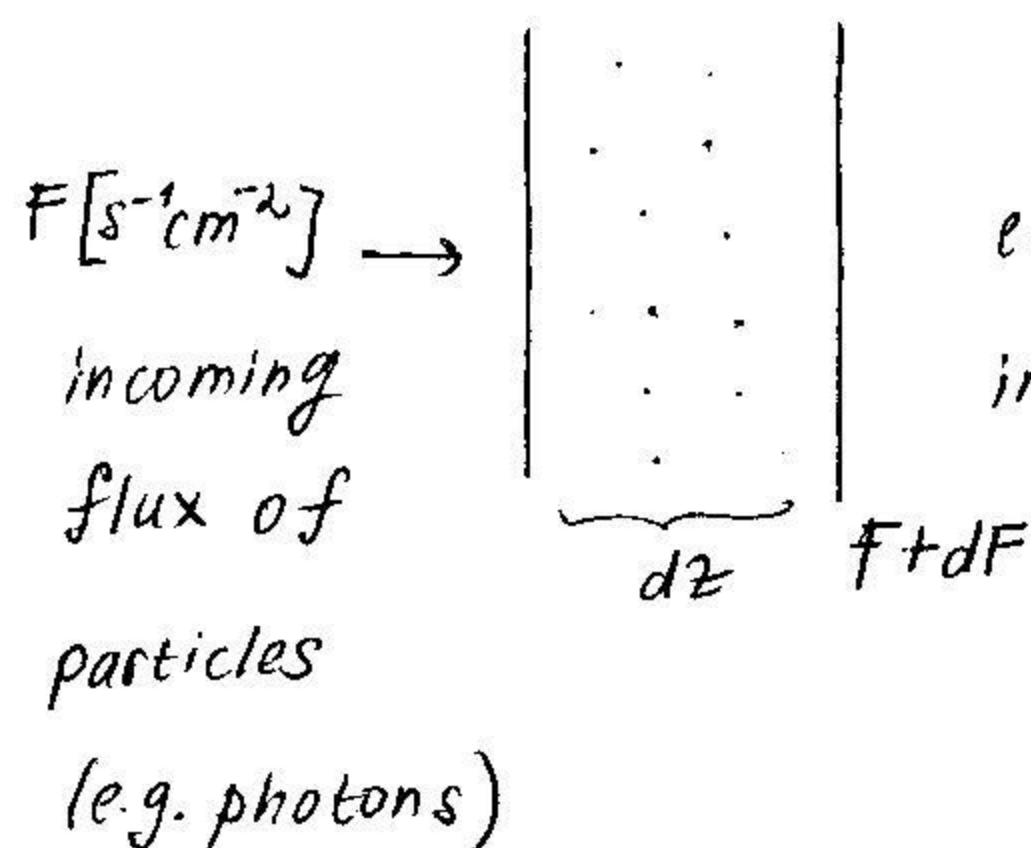 F[s⁻¹cm⁻²] →
incoming
flux of
particles
(e.g. photons)
dz
F+dF